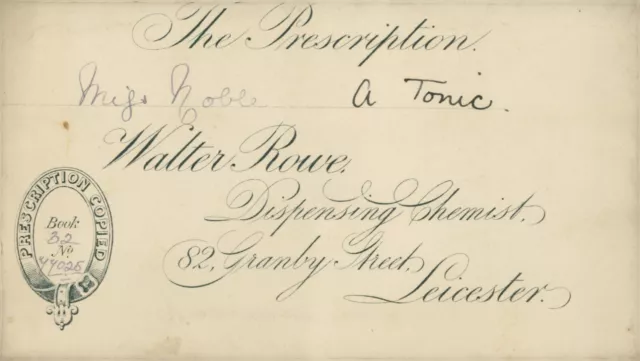 The Prescription.
Miss Noble A Tonic.
Walter Rowe,
Dispensing Chemist,
82, Granby Street,
Leicester.
PRESCRIPTION COPIED
Book
32
No